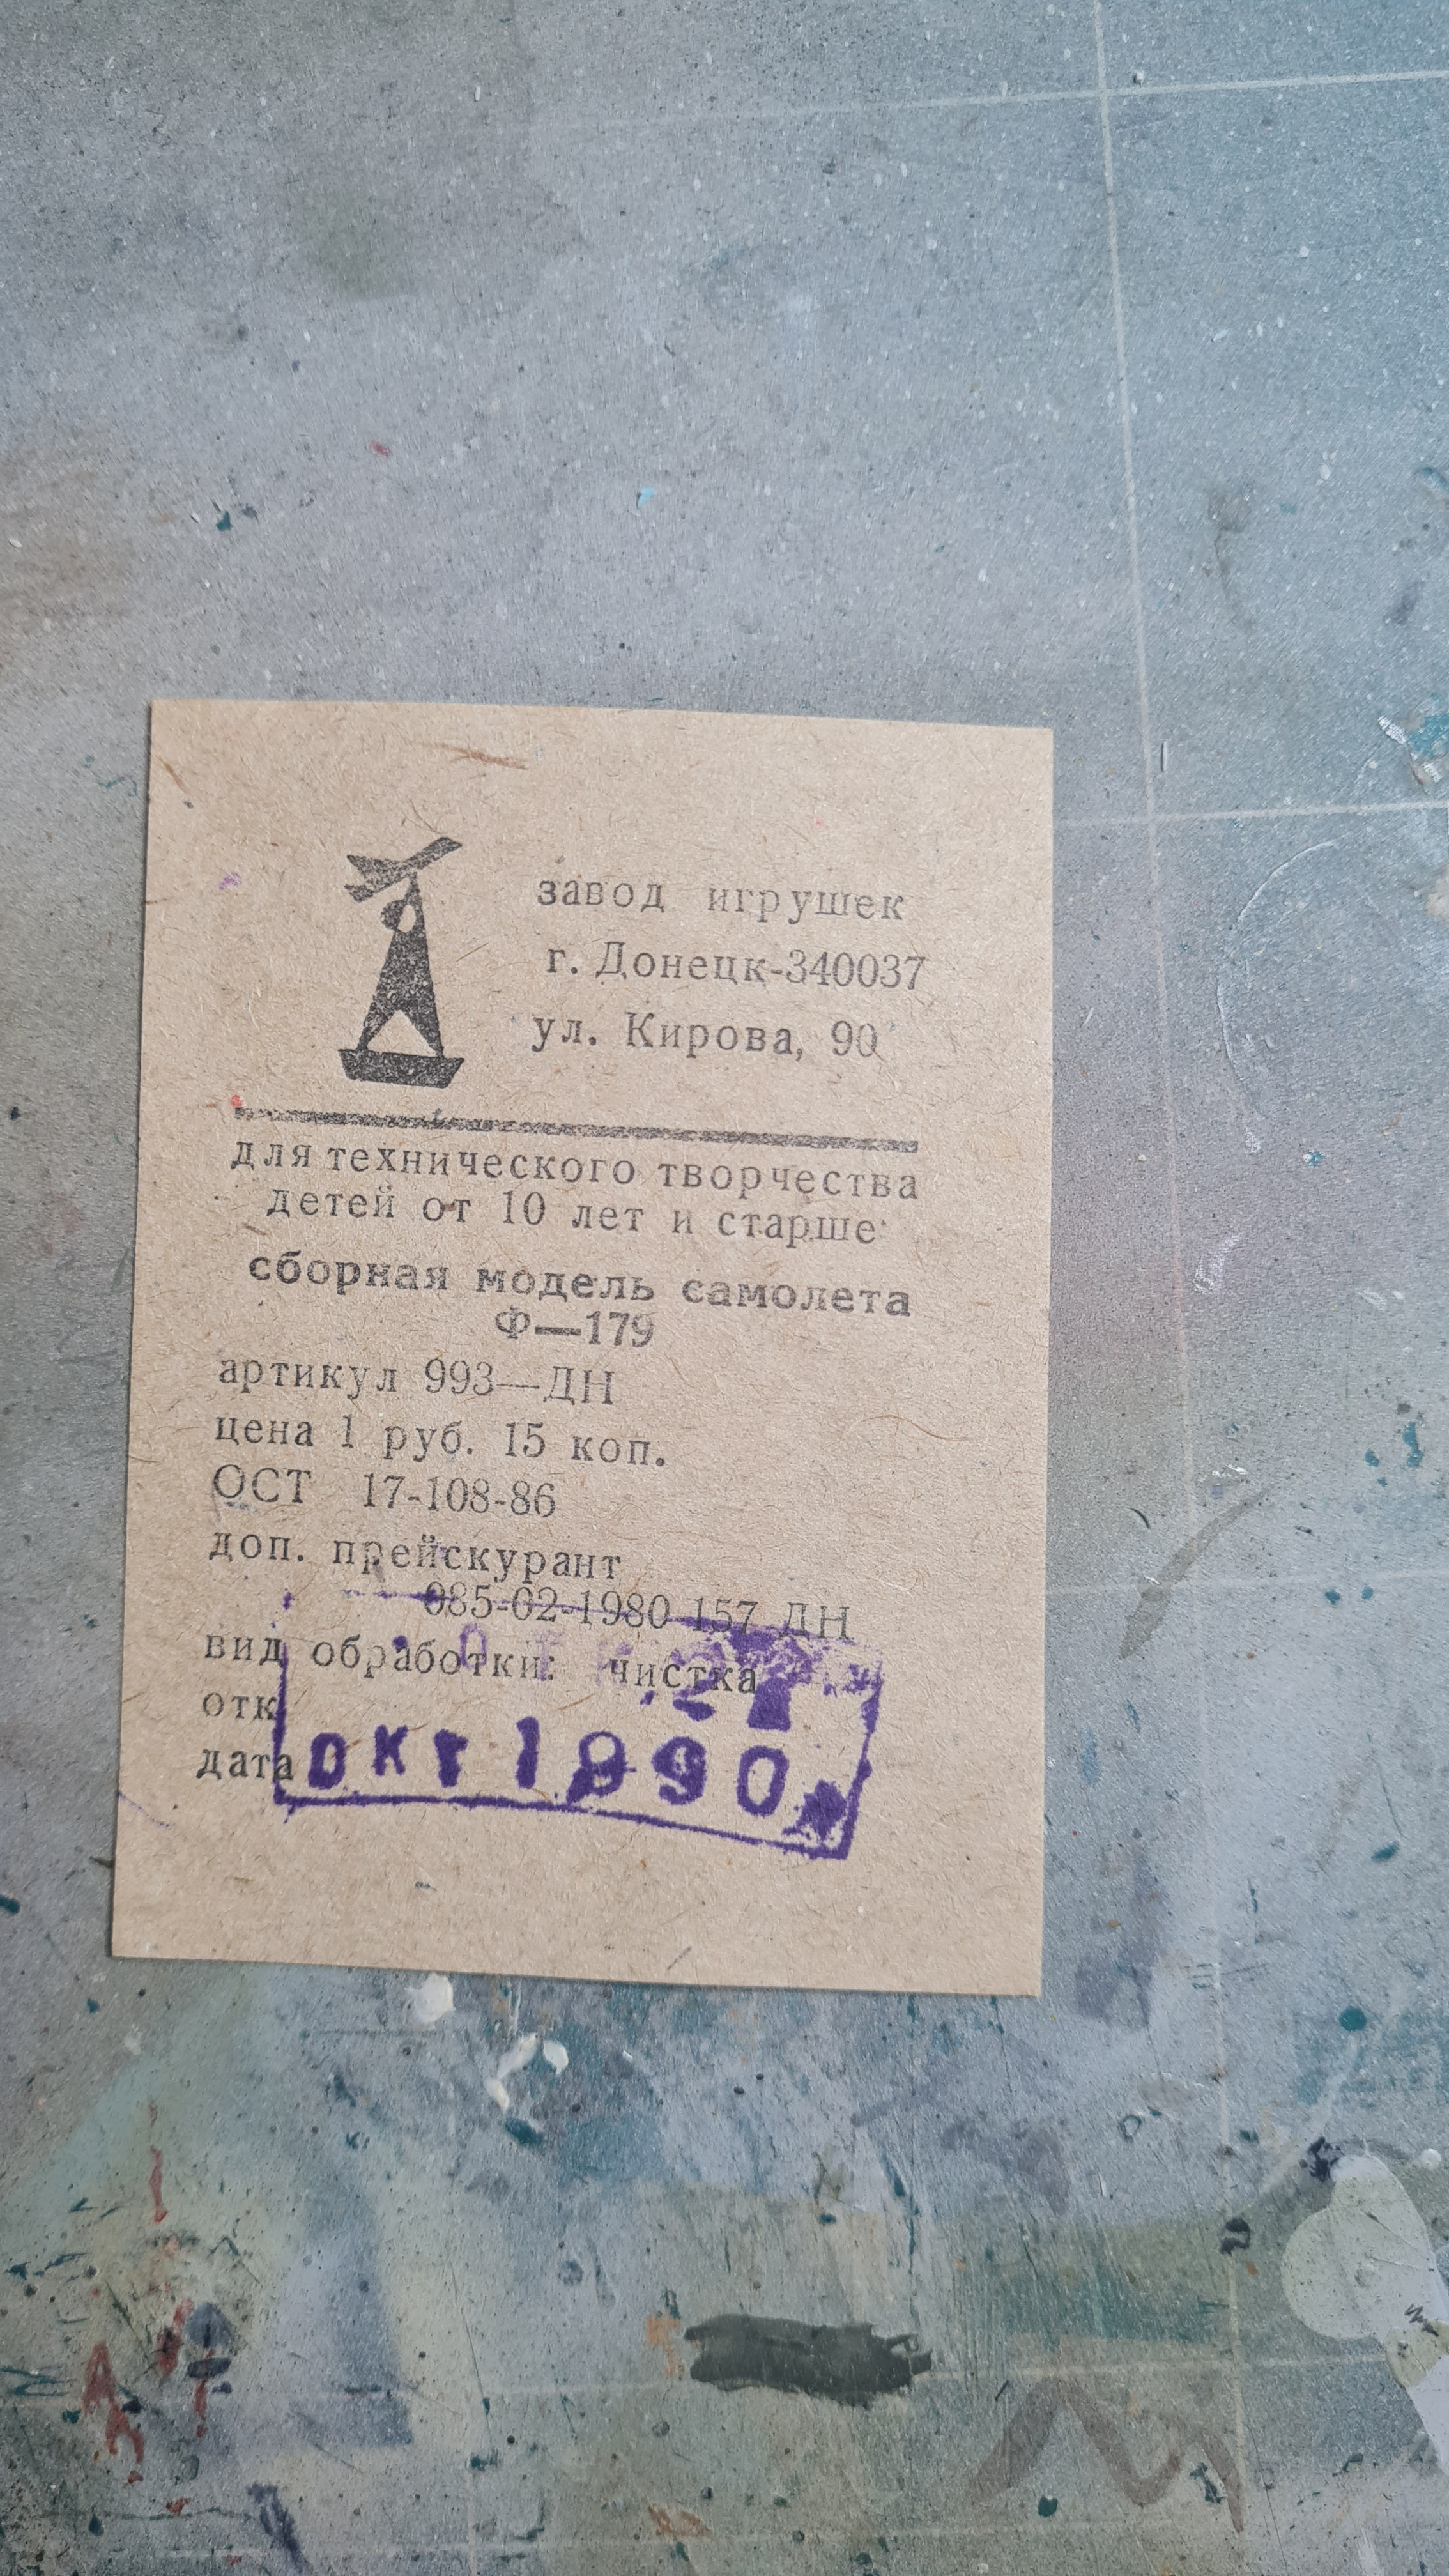 завод игрушек
г. Донецк-340037
ул. Кирова, 90
для технического творчества
детей от 10 лет и старше
сборная модель самолета
Ф—179
артикул 993—ДН
цена 1 руб. 15 коп.
ОСТ 17-108-86
доп. прейскурант
085-02-1980 157 ДН
вид обработки: чистка
отк
дата
окт 1990